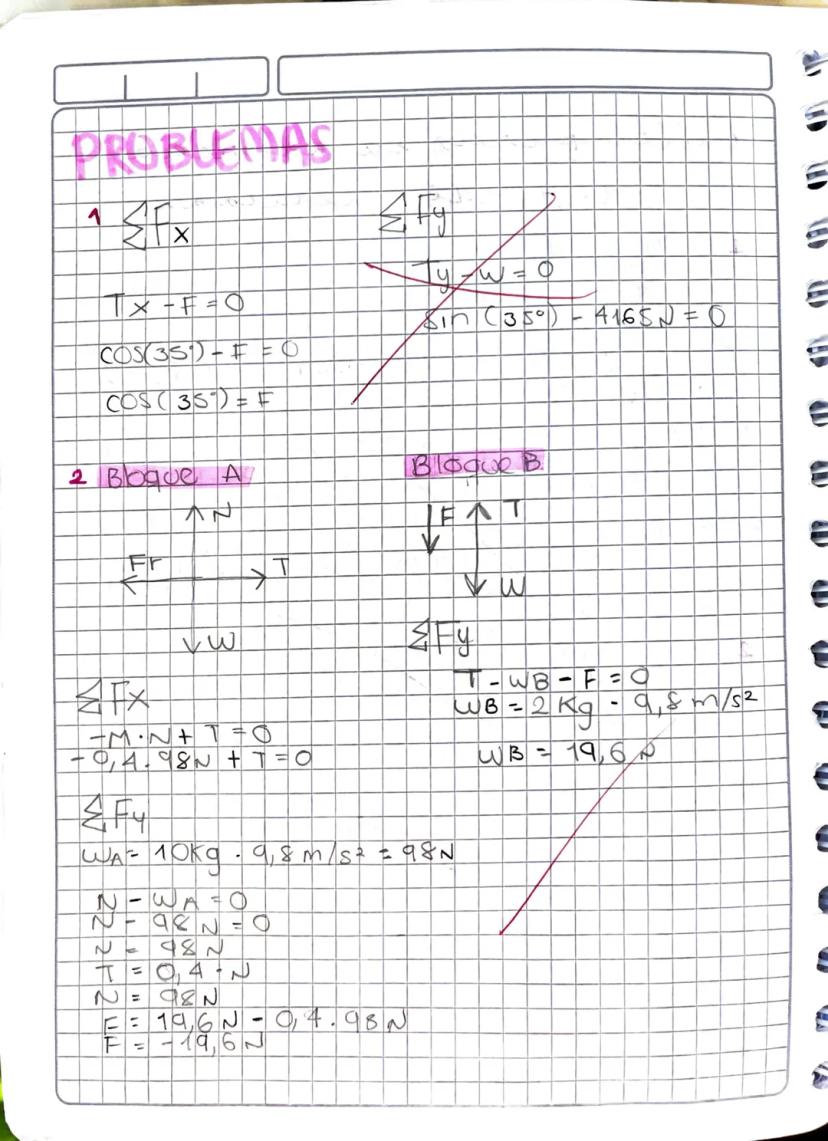 PROBLEMAS
1 ΣFx
Tx - F = 0
COS(35°) - F = 0
COS(35°) = F
ΣFy
Ty - W = 0
Sin (35°) - 4165N = 0
2 Bloque A
N
Fr
T
W
ΣFx
-M·N + T = 0
-0,4.98N + T = 0
ΣFy
WA = 10Kg . 9,8 m/s² = 98N
N - WA = 0
N - 98N = 0
N = 98N
T = 0,4 · N
N = 98N
F = 19,6N - 0,4.98N
F = -19,6N
Bloque B
F T
W
ΣFy
T - WB - F = 0
WB = 2Kg · 9,8 m/s²
WB = 19,6 N